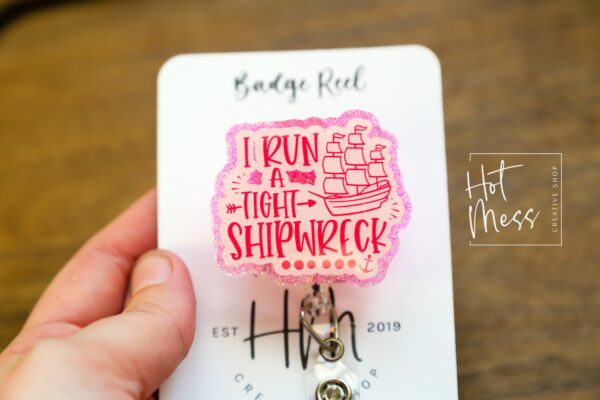 Badge Reel
I RUN
A
TIGHT
SHIPWRECK
EST Hm 2019
CREATIVE SHOP
Hot
Mess
CREATIVE SHOP